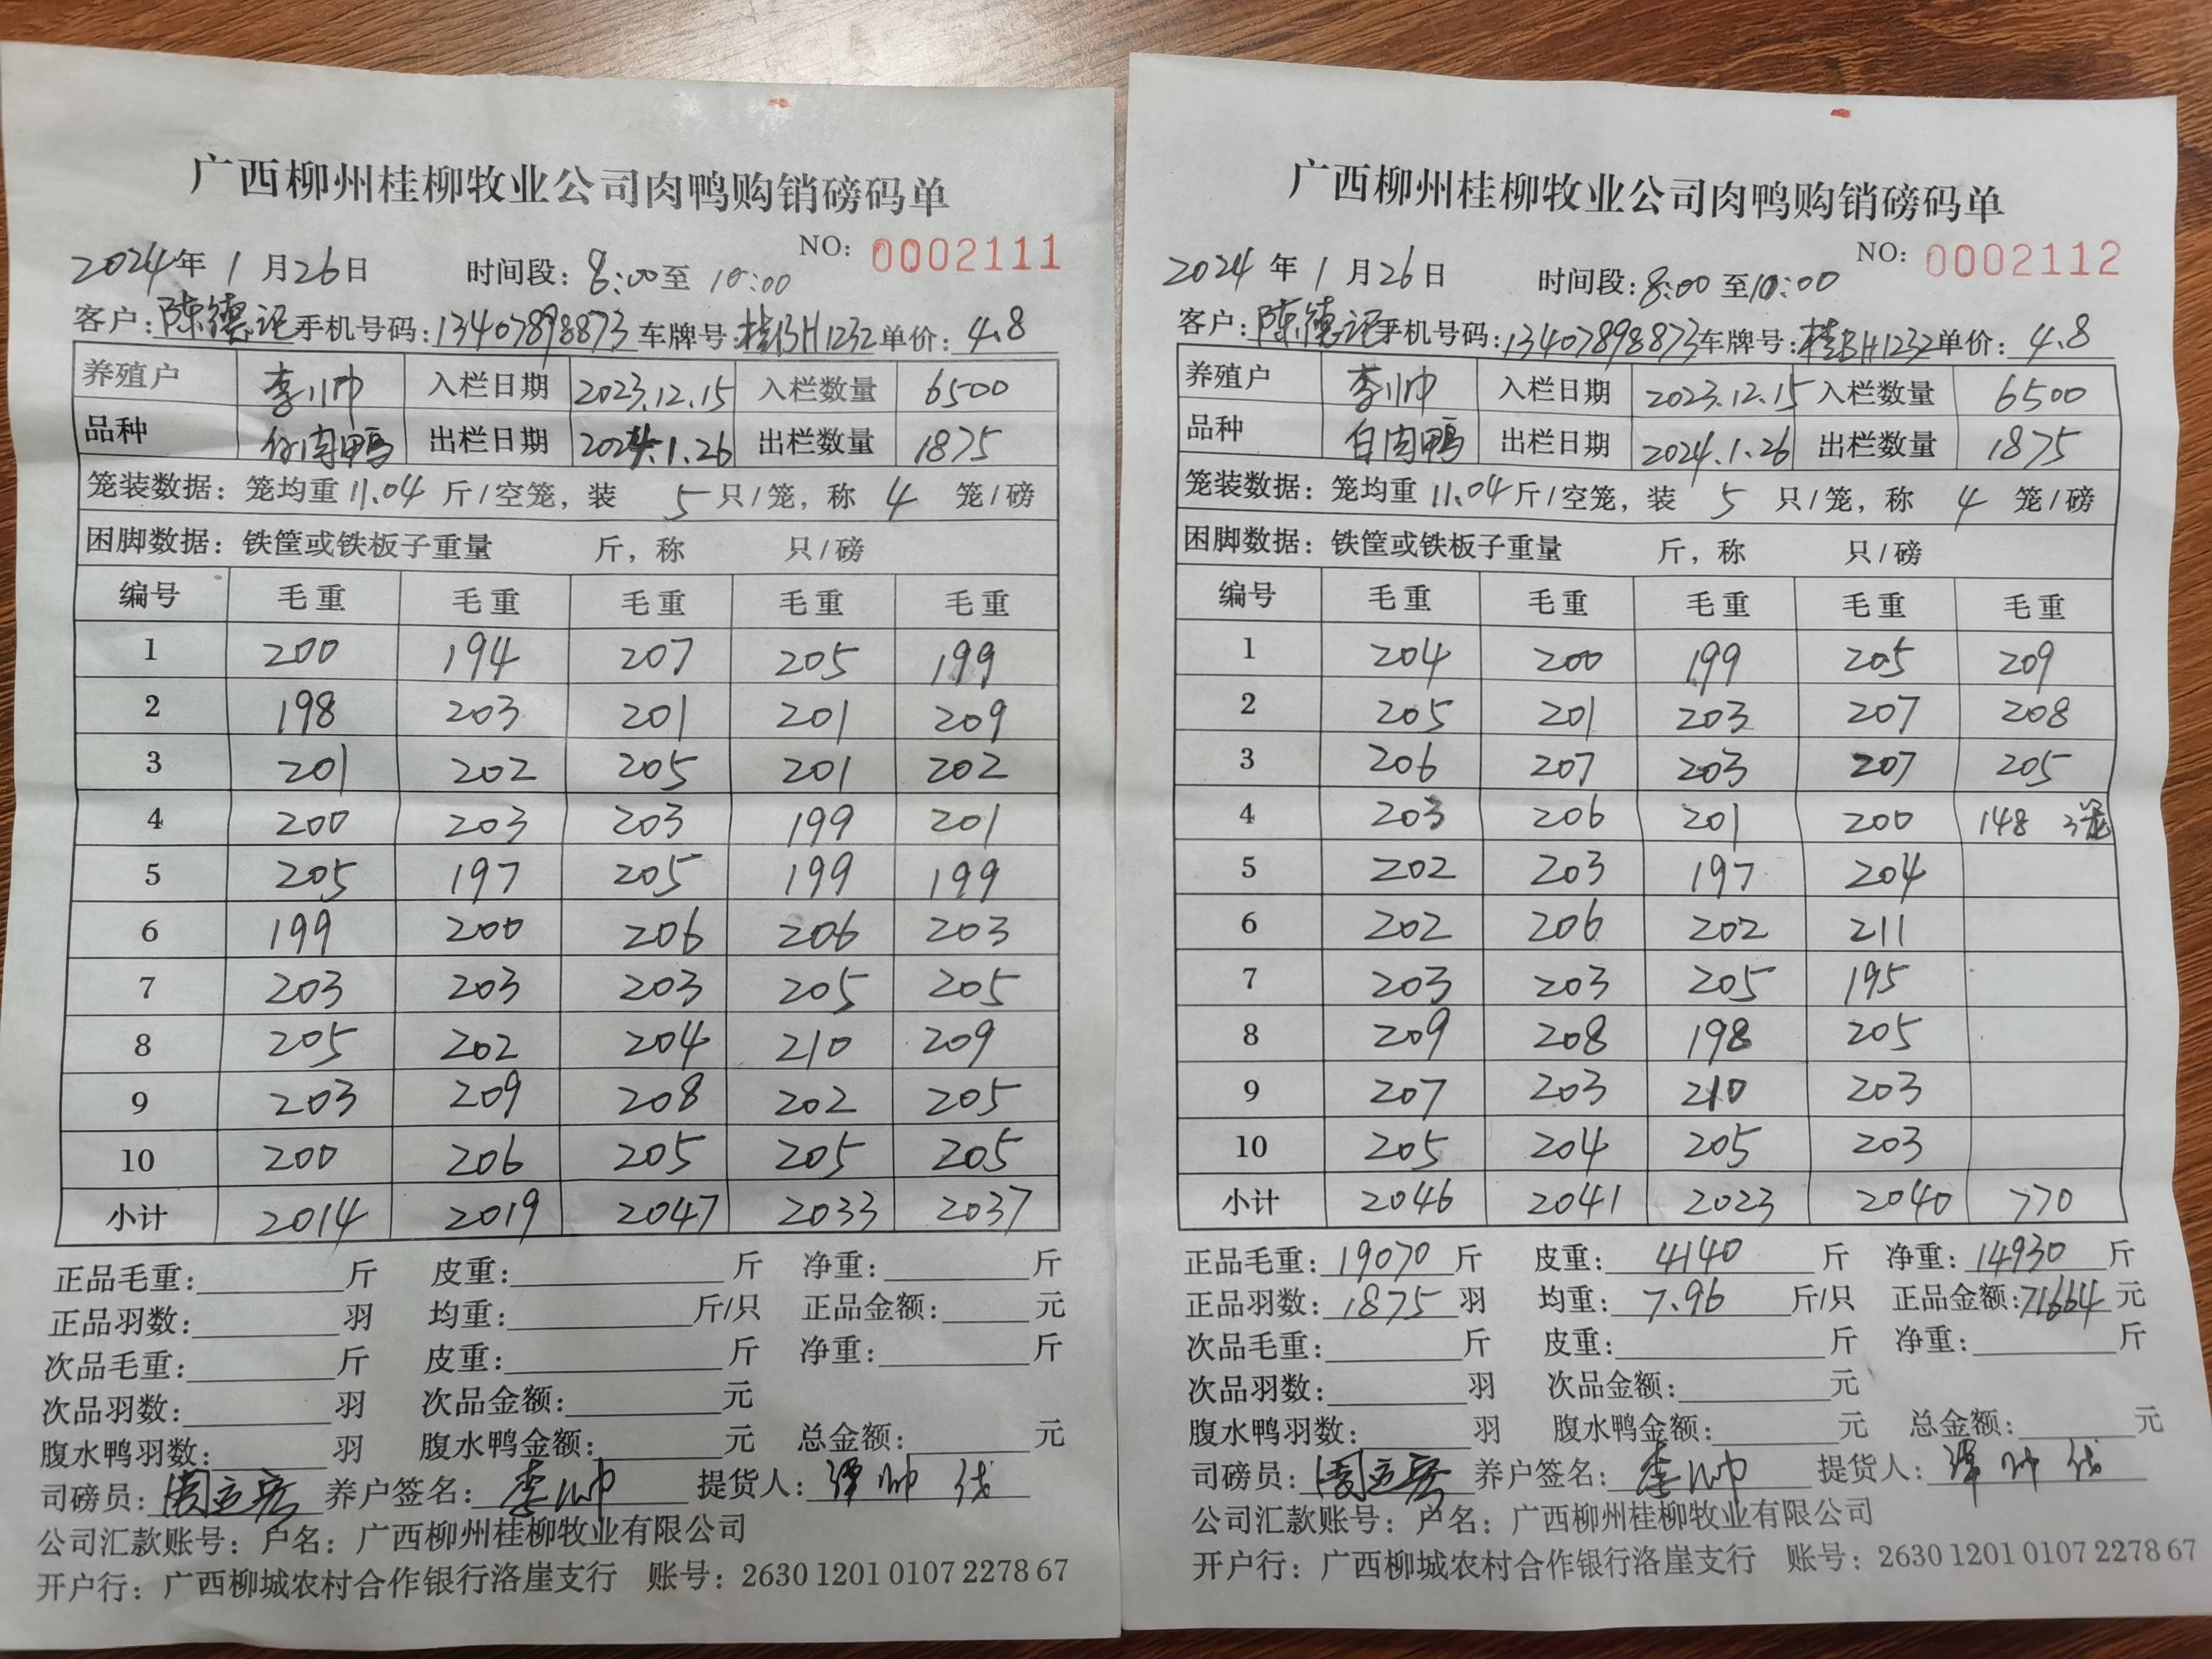 广西柳州桂柳牧业公司肉鸭购销磅码单
NO: 0002111
2024年 1 月26日 时间段: 8:00至 10:00
客户: 陈德记 手机号码: 13407898873 车牌号: 桂BH1232 单价: 4.8
养殖户 李帅 入栏日期 2023.12.15 入栏数量 6500
品种 白肉鸭 出栏日期 2024.1.26 出栏数量 1875
笼装数据: 笼均重 11.04 斤/空笼, 装 5 只/笼, 称 4 笼/磅
困脚数据: 铁筐或铁板子重量 斤, 称 只/磅
编号 毛重 毛重 毛重 毛重 毛重
1 200 194 207 205 199
2 198 203 201 201 209
3 201 202 205 201 202
4 200 203 203 199 201
5 205 197 205 199 199
6 199 200 206 206 203
7 203 203 203 205 205
8 205 202 204 210 209
9 203 209 208 202 205
10 200 206 205 205 205
小计 2014 2019 2047 2033 2037
正品毛重: 斤 皮重: 斤 净重: 斤
正品羽数: 羽 均重: 斤/只 正品金额: 元
次品毛重: 斤 皮重: 斤 净重: 斤
次品羽数: 羽 次品金额: 元
腹水鸭羽数: 羽 腹水鸭金额: 元 总金额: 元
司磅员: 养户签名: 李帅 提货人:
公司汇款账号: 户名: 广西柳州桂柳牧业有限公司
开户行: 广西柳城农村合作银行洛崖支行 账号: 2630 1201 0107 2278 67
广西柳州桂柳牧业公司肉鸭购销磅码单
NO: 0002112
2024 年 1 月26日 时间段: 8:00 至10:00
客户: 陈德记 手机号码: 13407898873 车牌号: 桂BH1232 单价: 4.8
养殖户 李帅 入栏日期 2023.12.15 入栏数量 6500
品种 白肉鸭 出栏日期 2024.1.26 出栏数量 1875
笼装数据: 笼均重 11.04 斤/空笼, 装 5 只/笼, 称 4 笼/磅
困脚数据: 铁筐或铁板子重量 斤, 称 只/磅
编号 毛重 毛重 毛重 毛重 毛重
1 204 200 199 205 209
2 205 201 203 207 208
3 206 207 203 207 205
4 203 206 201 200 148 3笼
5 202 203 197 204
6 202 206 202 211
7 203 203 205 195
8 209 208 198 205
9 207 203 210 203
10 205 204 205 203
小计 2046 2041 2023 2040 770
正品毛重: 19070 斤 皮重: 4140 斤 净重: 14930 斤
正品羽数: 1875 羽 均重: 7.96 斤/只 正品金额: 71664 元
次品毛重: 斤 皮重: 斤 净重: 斤
次品羽数: 羽 次品金额: 元
腹水鸭羽数: 羽 腹水鸭金额: 元 总金额: 元
司磅员: 养户签名: 李帅 提货人:
公司汇款账号: 户名: 广西柳州桂柳牧业有限公司
开户行: 广西柳城农村合作银行洛崖支行 账号: 2630 1201 0107 2278 67